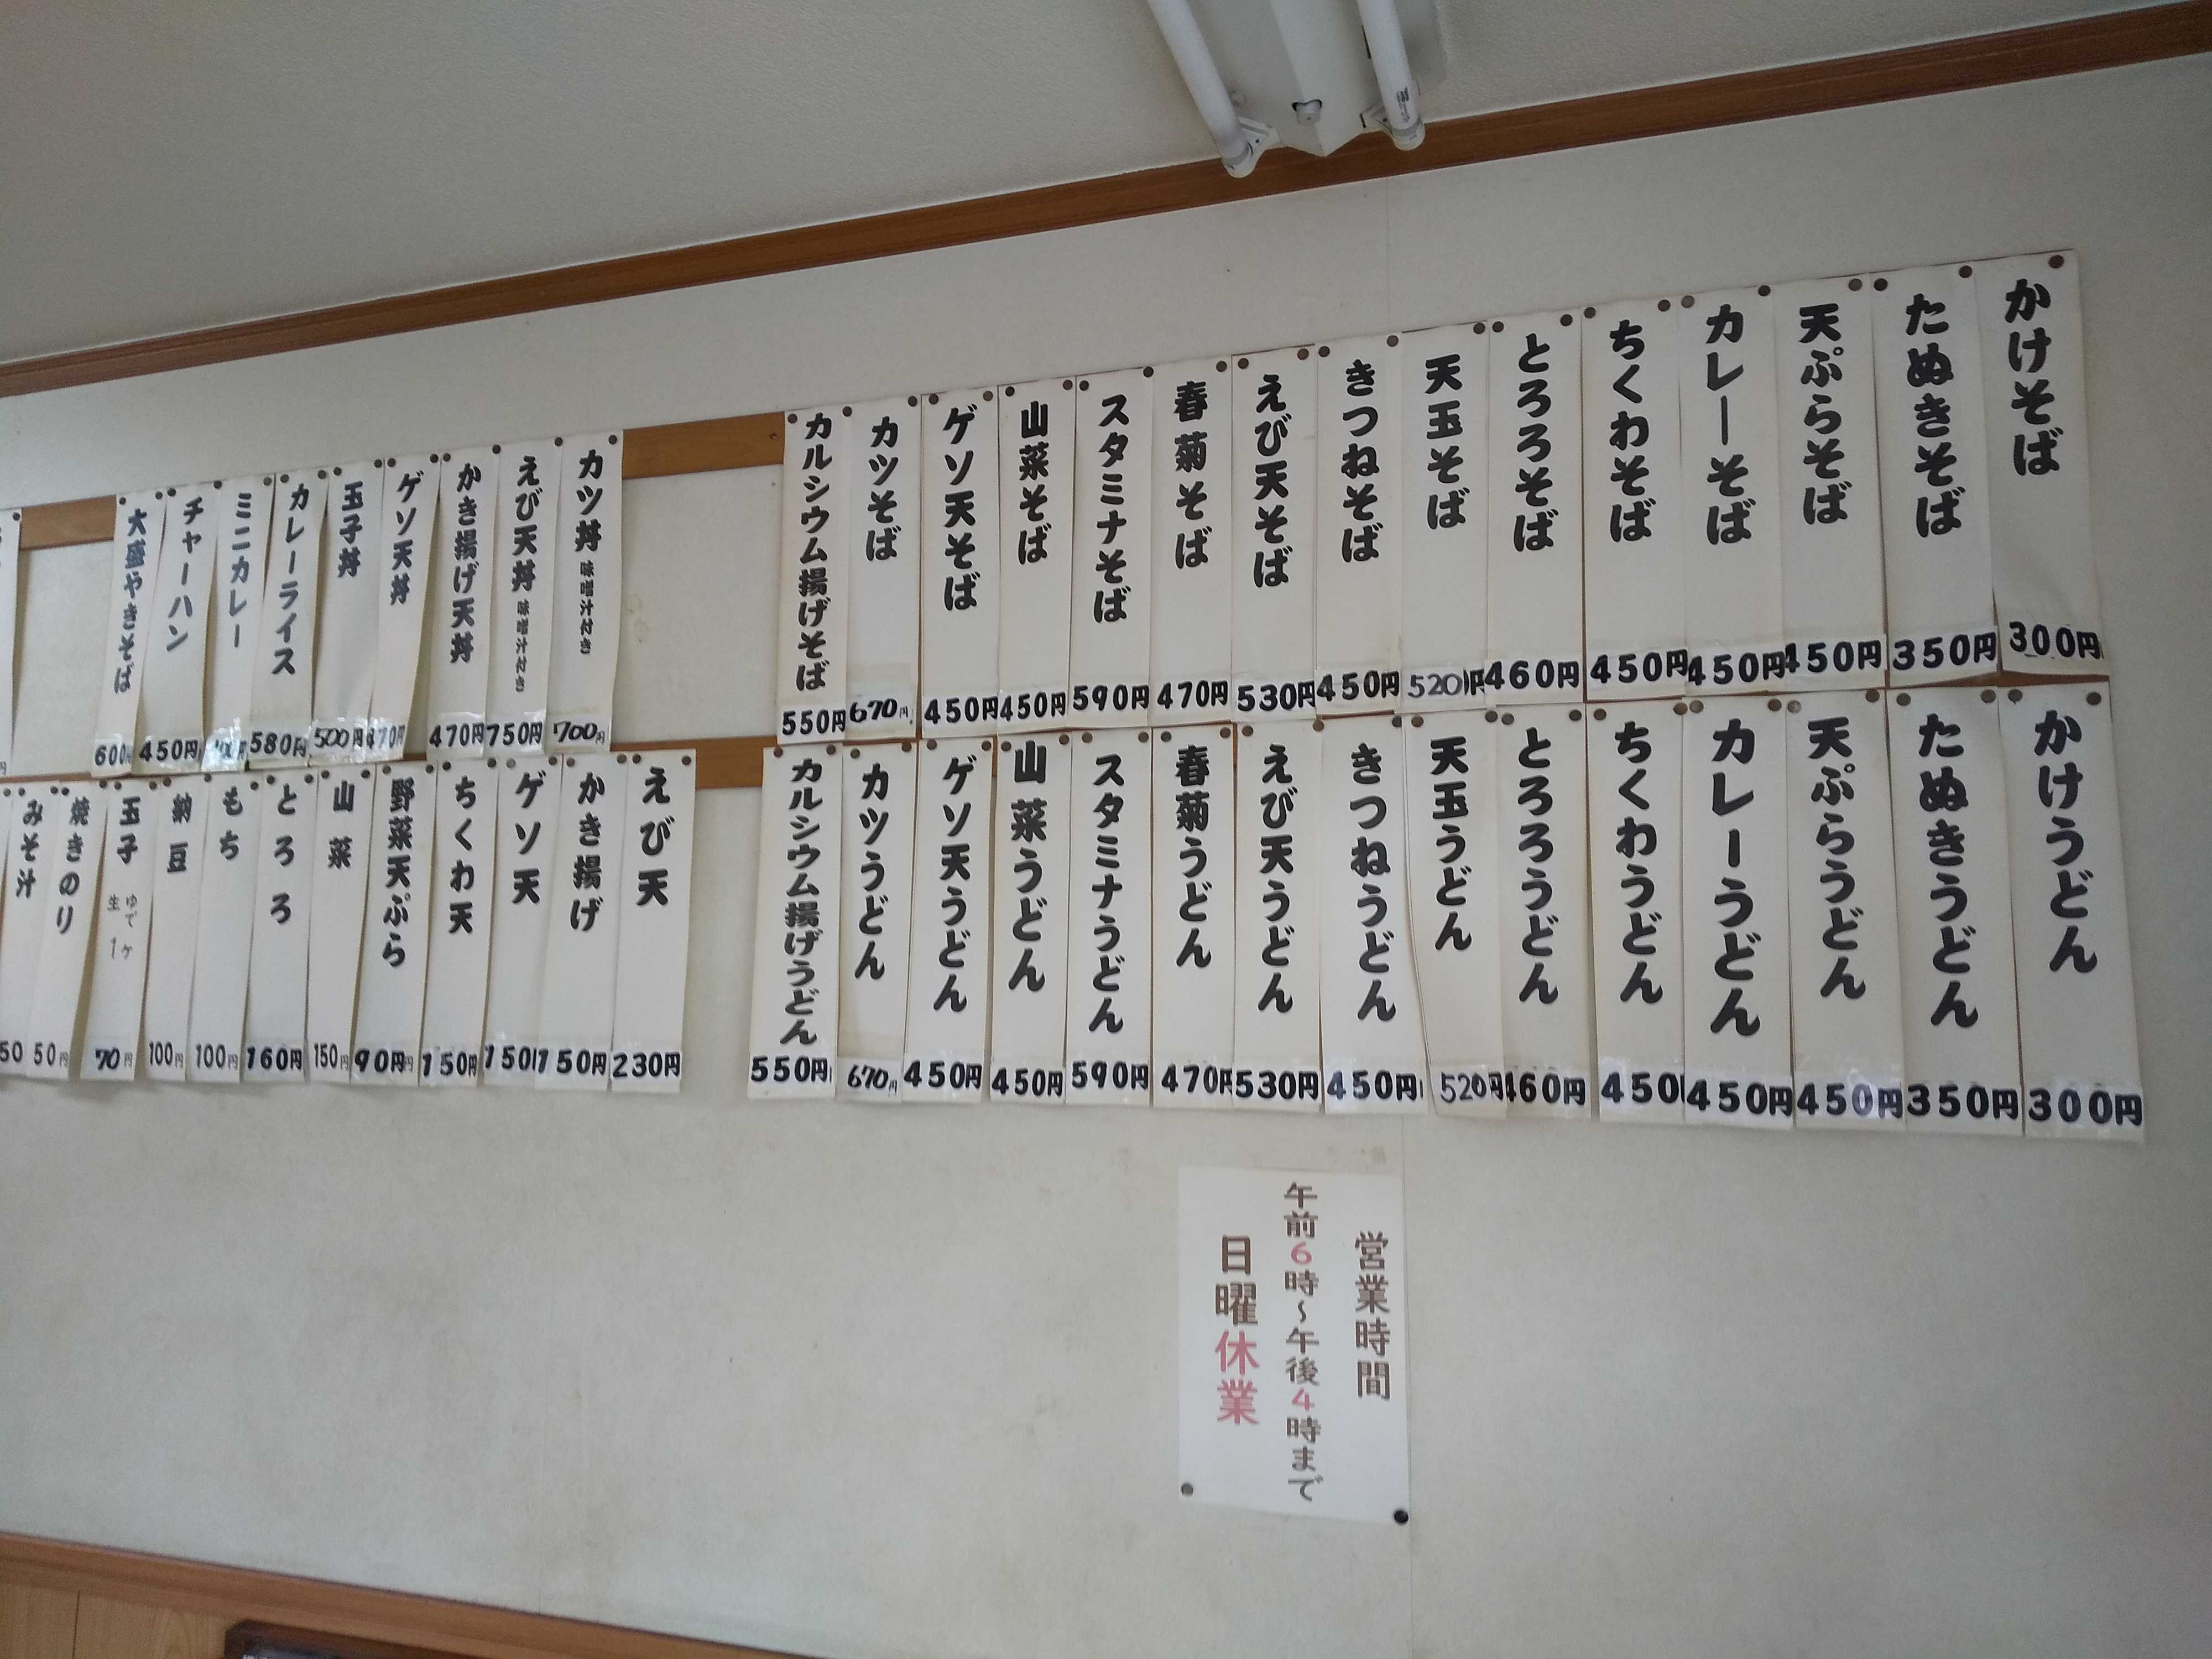 かけそば 300円
たぬきそば 350円
天ぷらそば 450円
カレーそば 450円
ちくわそば 450円
とろろそば 460円
天玉そば 520円
きつねそば 450円
えび天そば 530円
春菊そば 470円
スタミナそば 590円
山菜そば 450円
ゲソ天そば 450円
カツそば 670円
カルシウム揚げそば 550円
かけうどん 300円
たぬきうどん 350円
天ぷらうどん 450円
カレーうどん 450円
ちくわうどん 450
とろろうどん 460円
天玉うどん 520円
きつねうどん 450円
えび天うどん 530円
春菊うどん 470円
スタミナうどん 590円
山菜うどん 450円
ゲソ天うどん 450円
カツうどん 670円
カルシウム揚げうどん 550円
カツ丼 味噌汁付き 700円
えび天丼 味噌汁付き 750円
かき揚げ天丼 470円
ゲソ天丼 470円
玉子丼 500円
カレーライス 580円
ミニカレー
チャーハン 450円
大盛やきそば 600円
えび天 230円
かき揚げ 150円
ゲソ天 150円
ちくわ天 150円
野菜天ぷら 90円
山菜 150円
とろろ 160円
もち 100円
納豆 100円
玉子 ゆで 生 1ヶ 70円
焼きのり 50円
みそ汁 50
営業時間
午前6時～午後4時まで
日曜休業